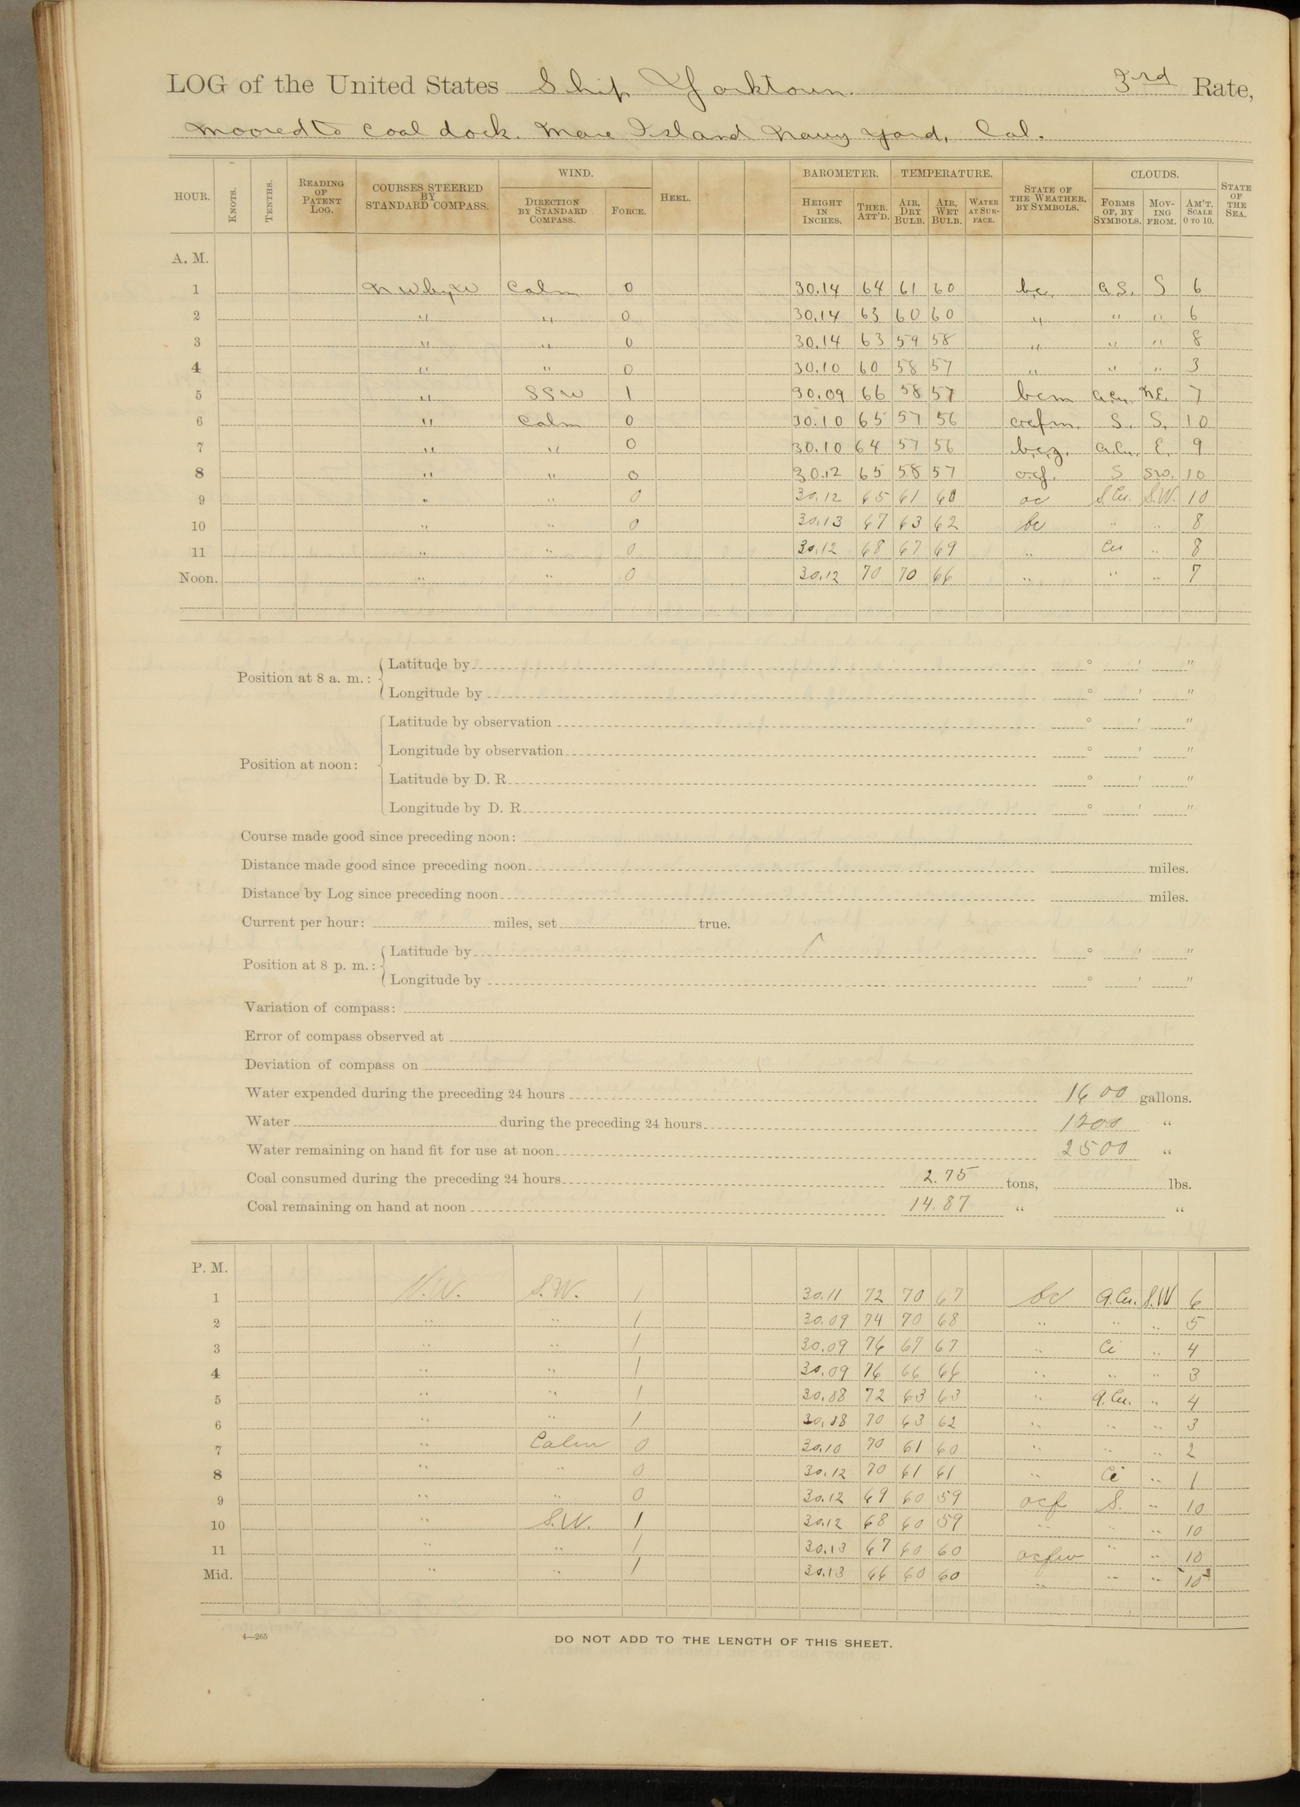 LOG of the United States Ship Yorktown. 3rd Rate,
Moored to coal dock. Mare Island Navy Yard, Cal.
HOUR. KNOTS. TENTHS. READING OF PATENT LOG. COURSES STEERED BY STANDARD COMPASS. WIND. DIRECTION BY STANDARD COMPASS. FORCE. HEEL. BAROMETER. HEIGHT IN INCHES. THER. ATT'D. TEMPERATURE. AIR, DRY BULB. AIR, WET BULB. WATER AT SURFACE. STATE OF THE WEATHER, BY SYMBOLS. CLOUDS. FORMS OF, BY SYMBOLS. MOVING FROM. AM'T. SCALE 0 TO 10. STATE OF THE SEA.
A. M.
1 NW by W Calm 0 30.14 64 61 60 bc. a S. S 6
2 " " 0 30.14 63 60 60 " " " 6
3 " " 0 30.14 63 59 58 " " " 8
4 " " 0 30.10 60 58 57 " " " 3
5 " SSW 1 30.09 66 58 57 bcm a.cu. N.E. 7
6 " Calm 0 30.10 65 57 56 ocfm. S. S. 10
7 " " 0 30.10 64 57 56 b.c.z. a.cu. E. 9
8 " " 0 30.12 65 58 57 ocf. S SW. 10
9 " " 0 30.12 65 61 60 oc S.Cu. S.W. 10
10 " " 0 30.13 67 63 62 bc " " 8
11 " " 0 30.12 68 67 69 " Cu " 8
Noon. " " 0 30.12 70 70 66 " " " 7
Position at 8 a. m.: Latitude by ° ' "
Longitude by ° ' "
Position at noon: Latitude by observation ° ' "
Longitude by observation ° ' "
Latitude by D. R. ° ' "
Longitude by D. R. ° ' "
Course made good since preceding noon:
Distance made good since preceding noon miles.
Distance by Log since preceding noon miles.
Current per hour: miles, set true.
Position at 8 p. m.: Latitude by ° ' "
Longitude by ° ' "
Variation of compass:
Error of compass observed at
Deviation of compass on
Water expended during the preceding 24 hours 1600 gallons.
Water during the preceding 24 hours 1200 "
Water remaining on hand fit for use at noon 2500 "
Coal consumed during the preceding 24 hours 2.75 tons, lbs.
Coal remaining on hand at noon 14.87 " "
P. M.
1 N.W. S.W. 1 30.11 72 70 67 bc a.Cu. S.W 6
2 " " 1 30.09 74 70 68 " " " 5
3 " " 1 30.09 76 67 67 " Ci " 4
4 " " 1 30.09 76 66 66 " " " 3
5 " " 1 30.08 72 63 63 " a.Cu. " 4
6 " " 1 30.08 70 63 62 " " " 3
7 " Calm 0 30.10 70 61 60 " " " 2
8 " " 0 30.12 70 61 61 " Ci " 1
9 " " 0 30.12 69 60 59 ocf S. " 10
10 " S.W. 1 30.12 68 60 59 " " " 10
11 " " 1 30.13 67 60 60 ocfw " " 10
Mid. " " 1 30.13 66 60 60 " " " 10
4—265
DO NOT ADD TO THE LENGTH OF THIS SHEET.